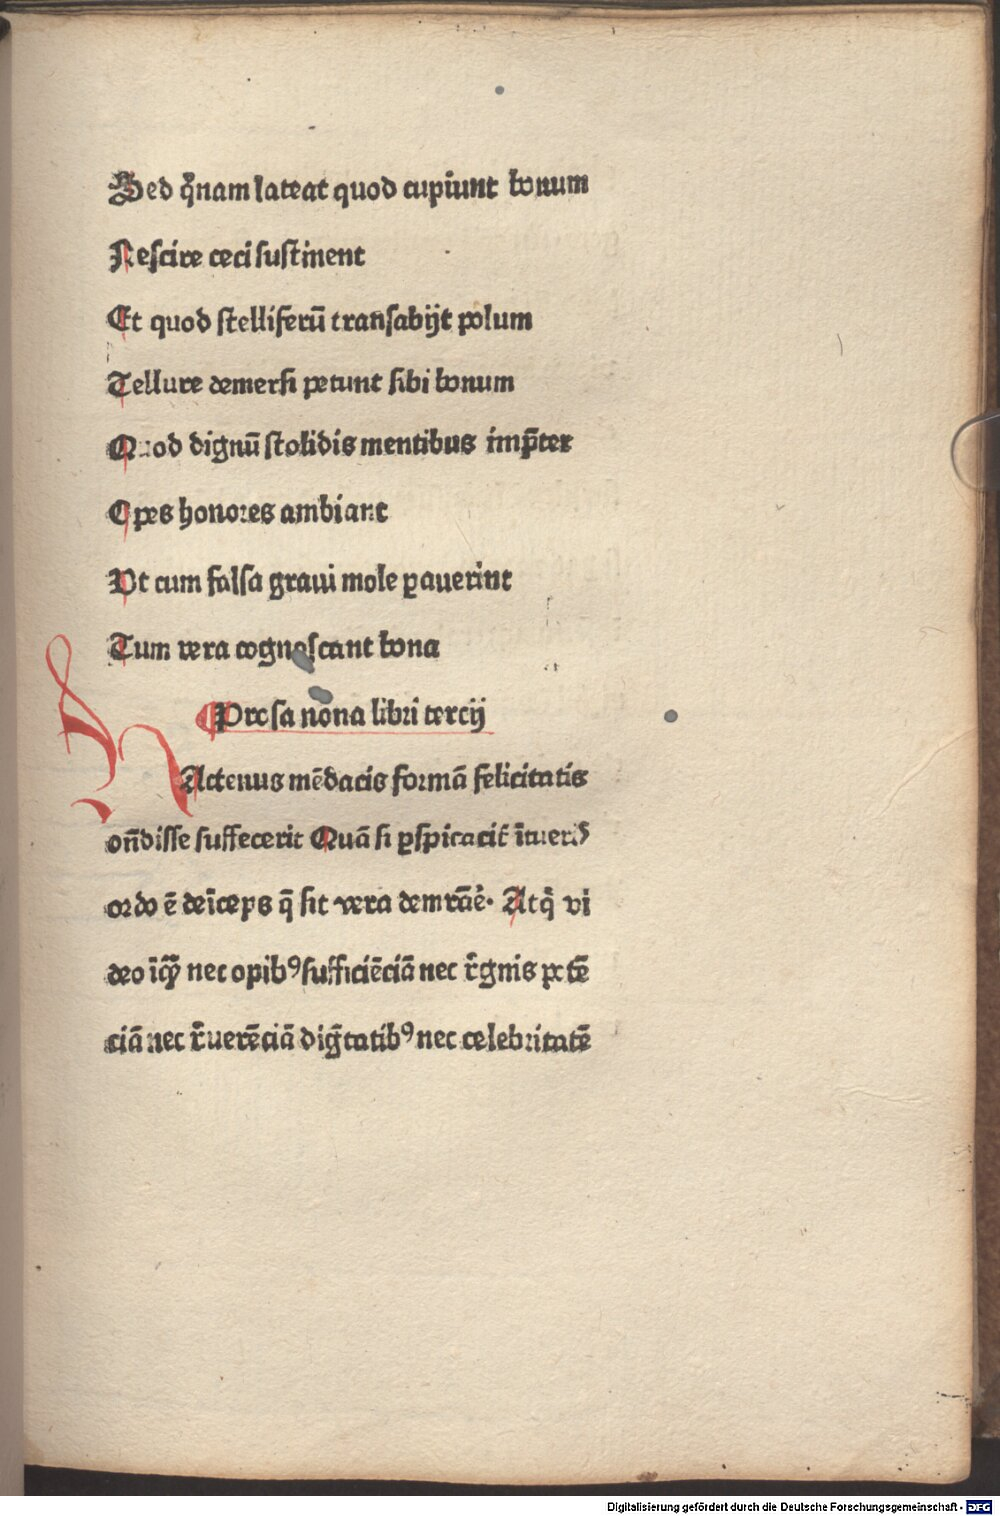 Sed qͦnam lateat quod cupiunt bonum
Nescire ceci sustinent
Et quod stelliferū transabijt polum
Tellure demersi petunt sibi bonum
Quod dignū stolidis mentibus imp̄cer
Opes honores ambiant
Vt cum falsa graui mole ꝑauerint
Tum vera cognoscant bona
Prosa nona libri tercij
HActenus mēdacis formā felicitatis
on̄disse suffecerit Quā si ꝑspicacit̄ ītueris
ordo ē deīceps q̄ sit vera demrāē. Atqͥ vi
deo īqͣꝫ nec opibꝰ sufficiēciā nec r̄gnis potē
ciā nec r̄uerēciā diḡtatibꝰ nec celebritatē
Digitalisierung gefördert durch die Deutsche Forschungsgemeinschaft - DFG